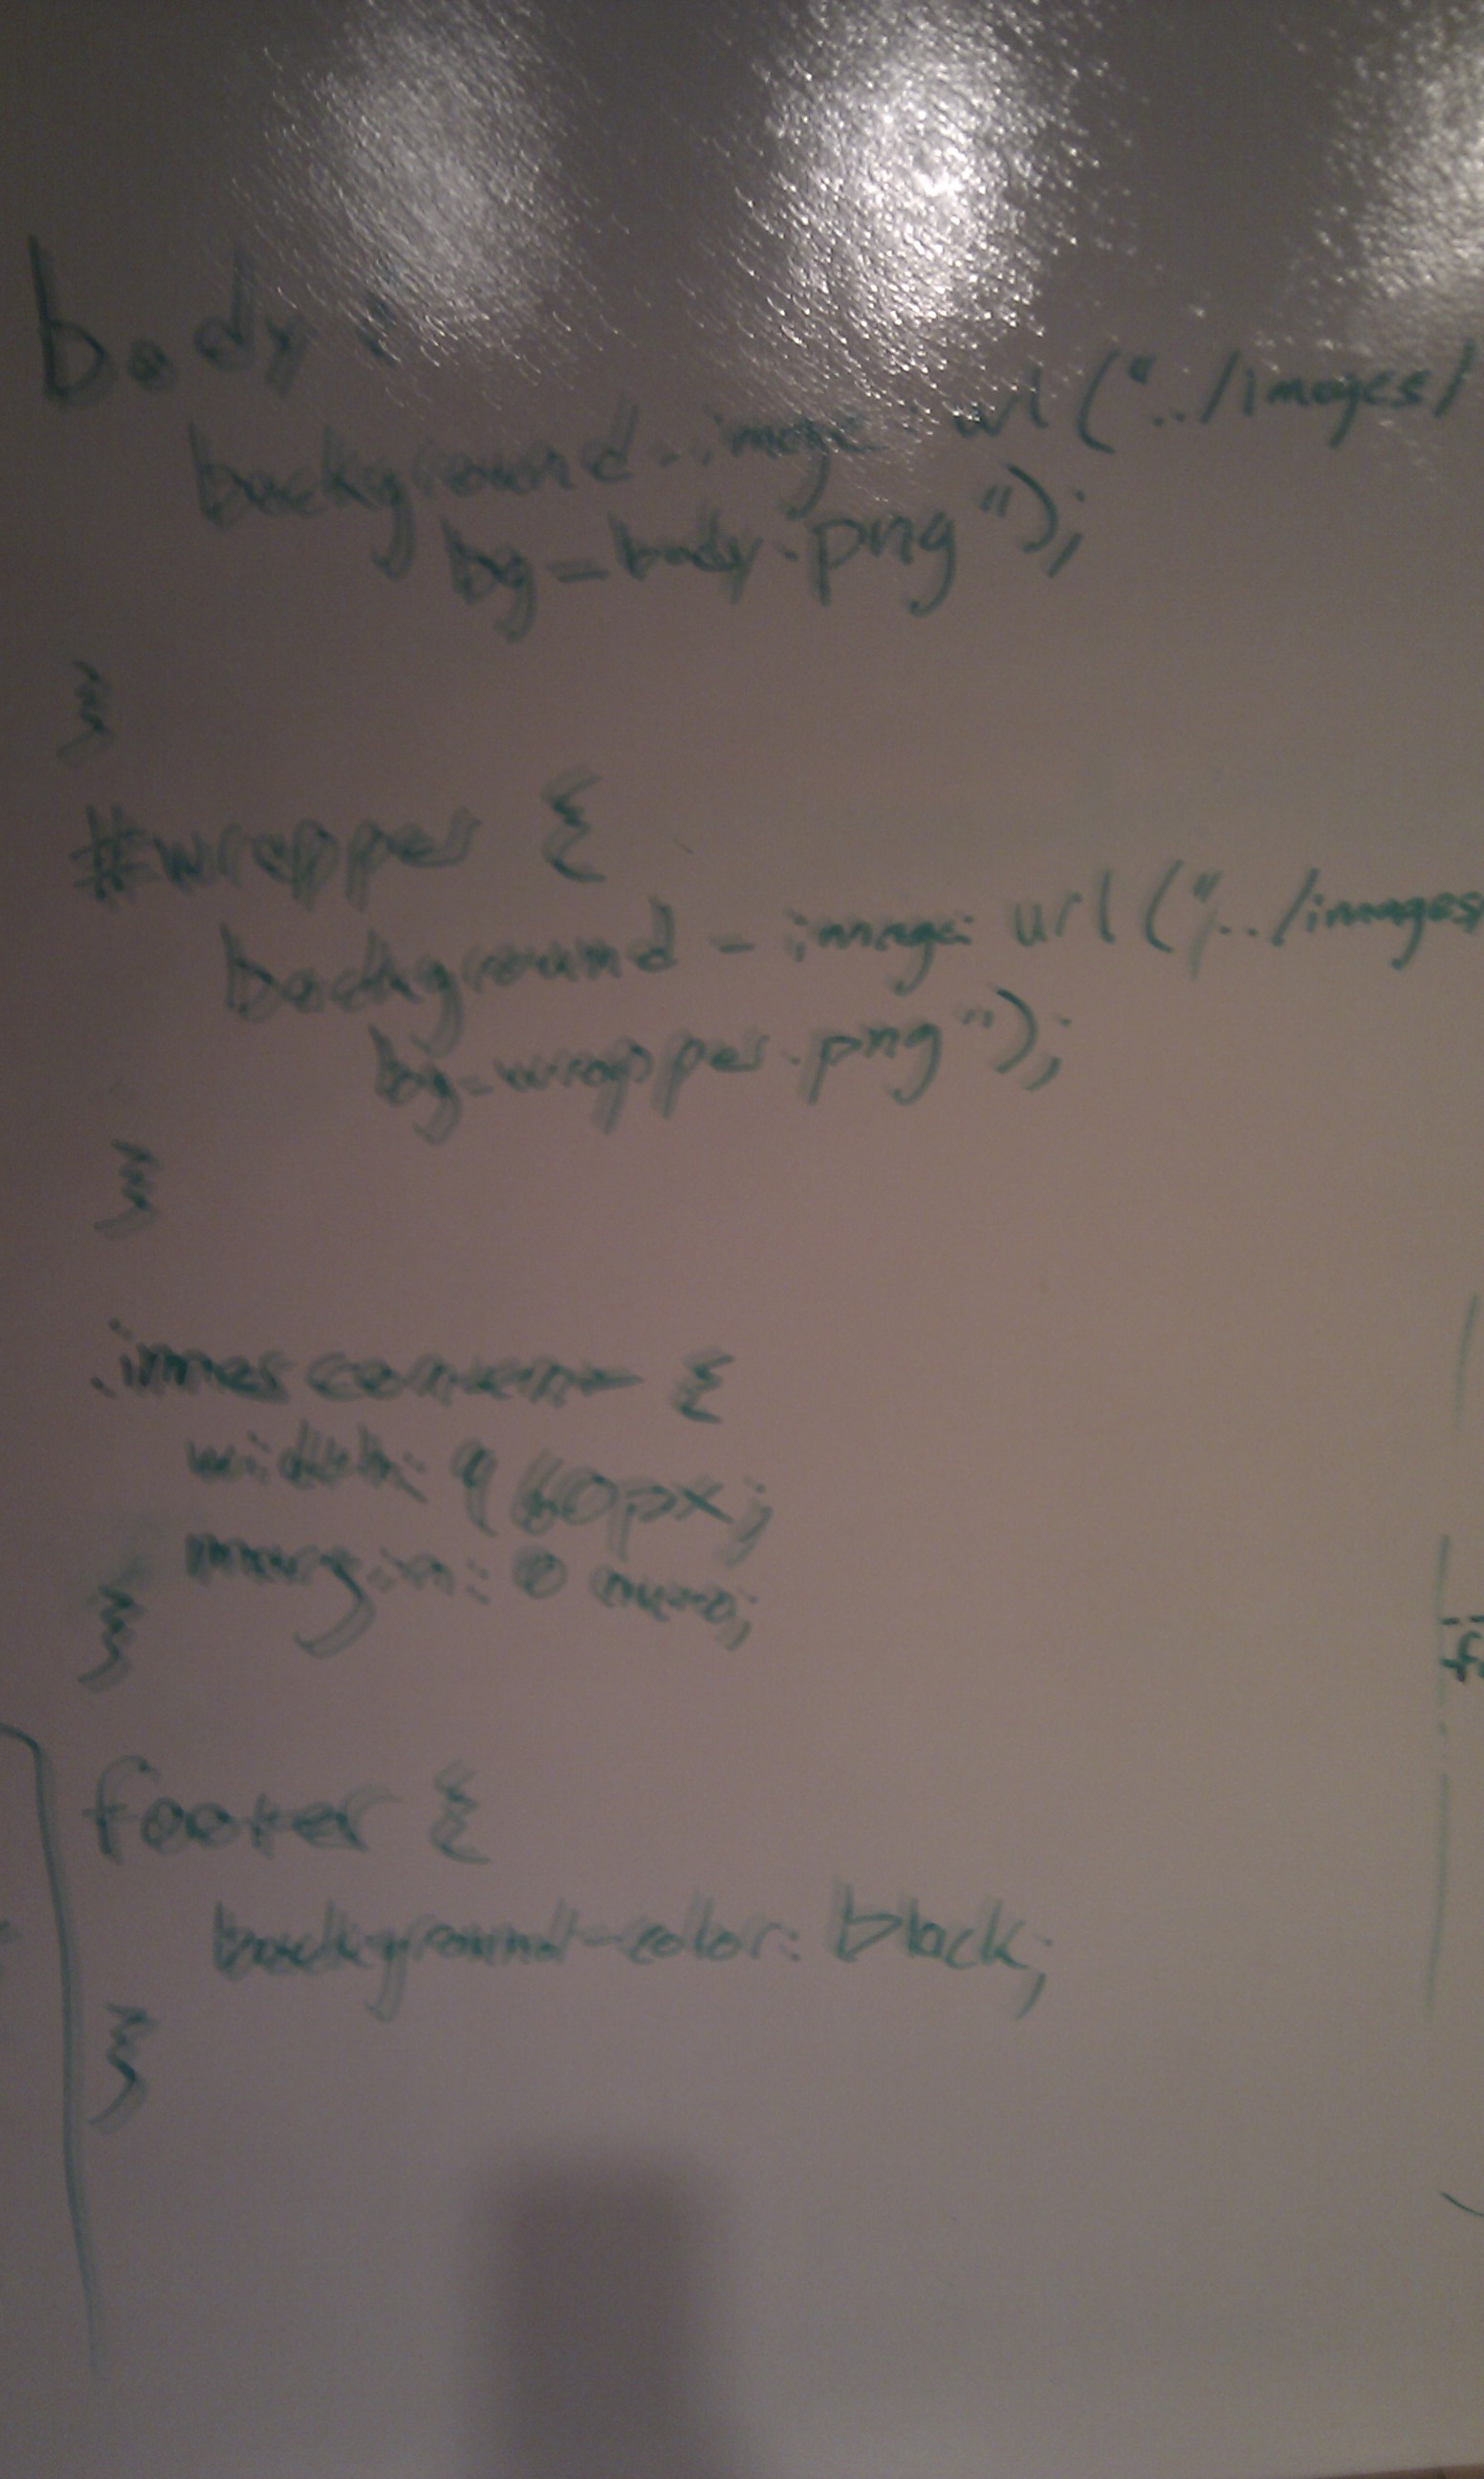 body {
background-image: url("../images/
bg-body.png");
}
#wrapper {
background-image: url("../images/
bg-wrapper.png");
}
.innercontent {
width: 960px;
margin: 0 auto;
}
footer {
background-color: black;
}